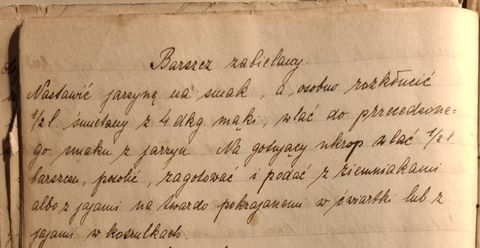 Barszcz zabielany.
Nastawić jarzynę na smak, a osobno rozkłócić
1/2 l. śmietany z 4 dkg mąki, wlać do przecedzone-
go smaku z jarzyn. Na gotujący ukrop wlać 1/2 l.
barszczu, posolić, zagotować i podać z ziemniakami
albo z jajami na twardo pokrajanemi w ćwiartki lub z
jajami w koszulkach.